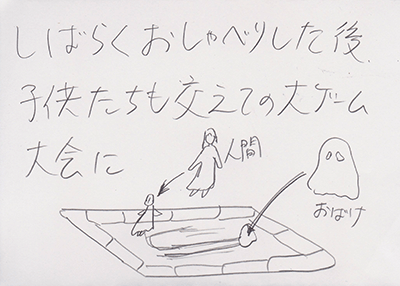 しばらくおしゃべりした後、
子供たちも交えての大ゲーム
大会に
人間
おばけ